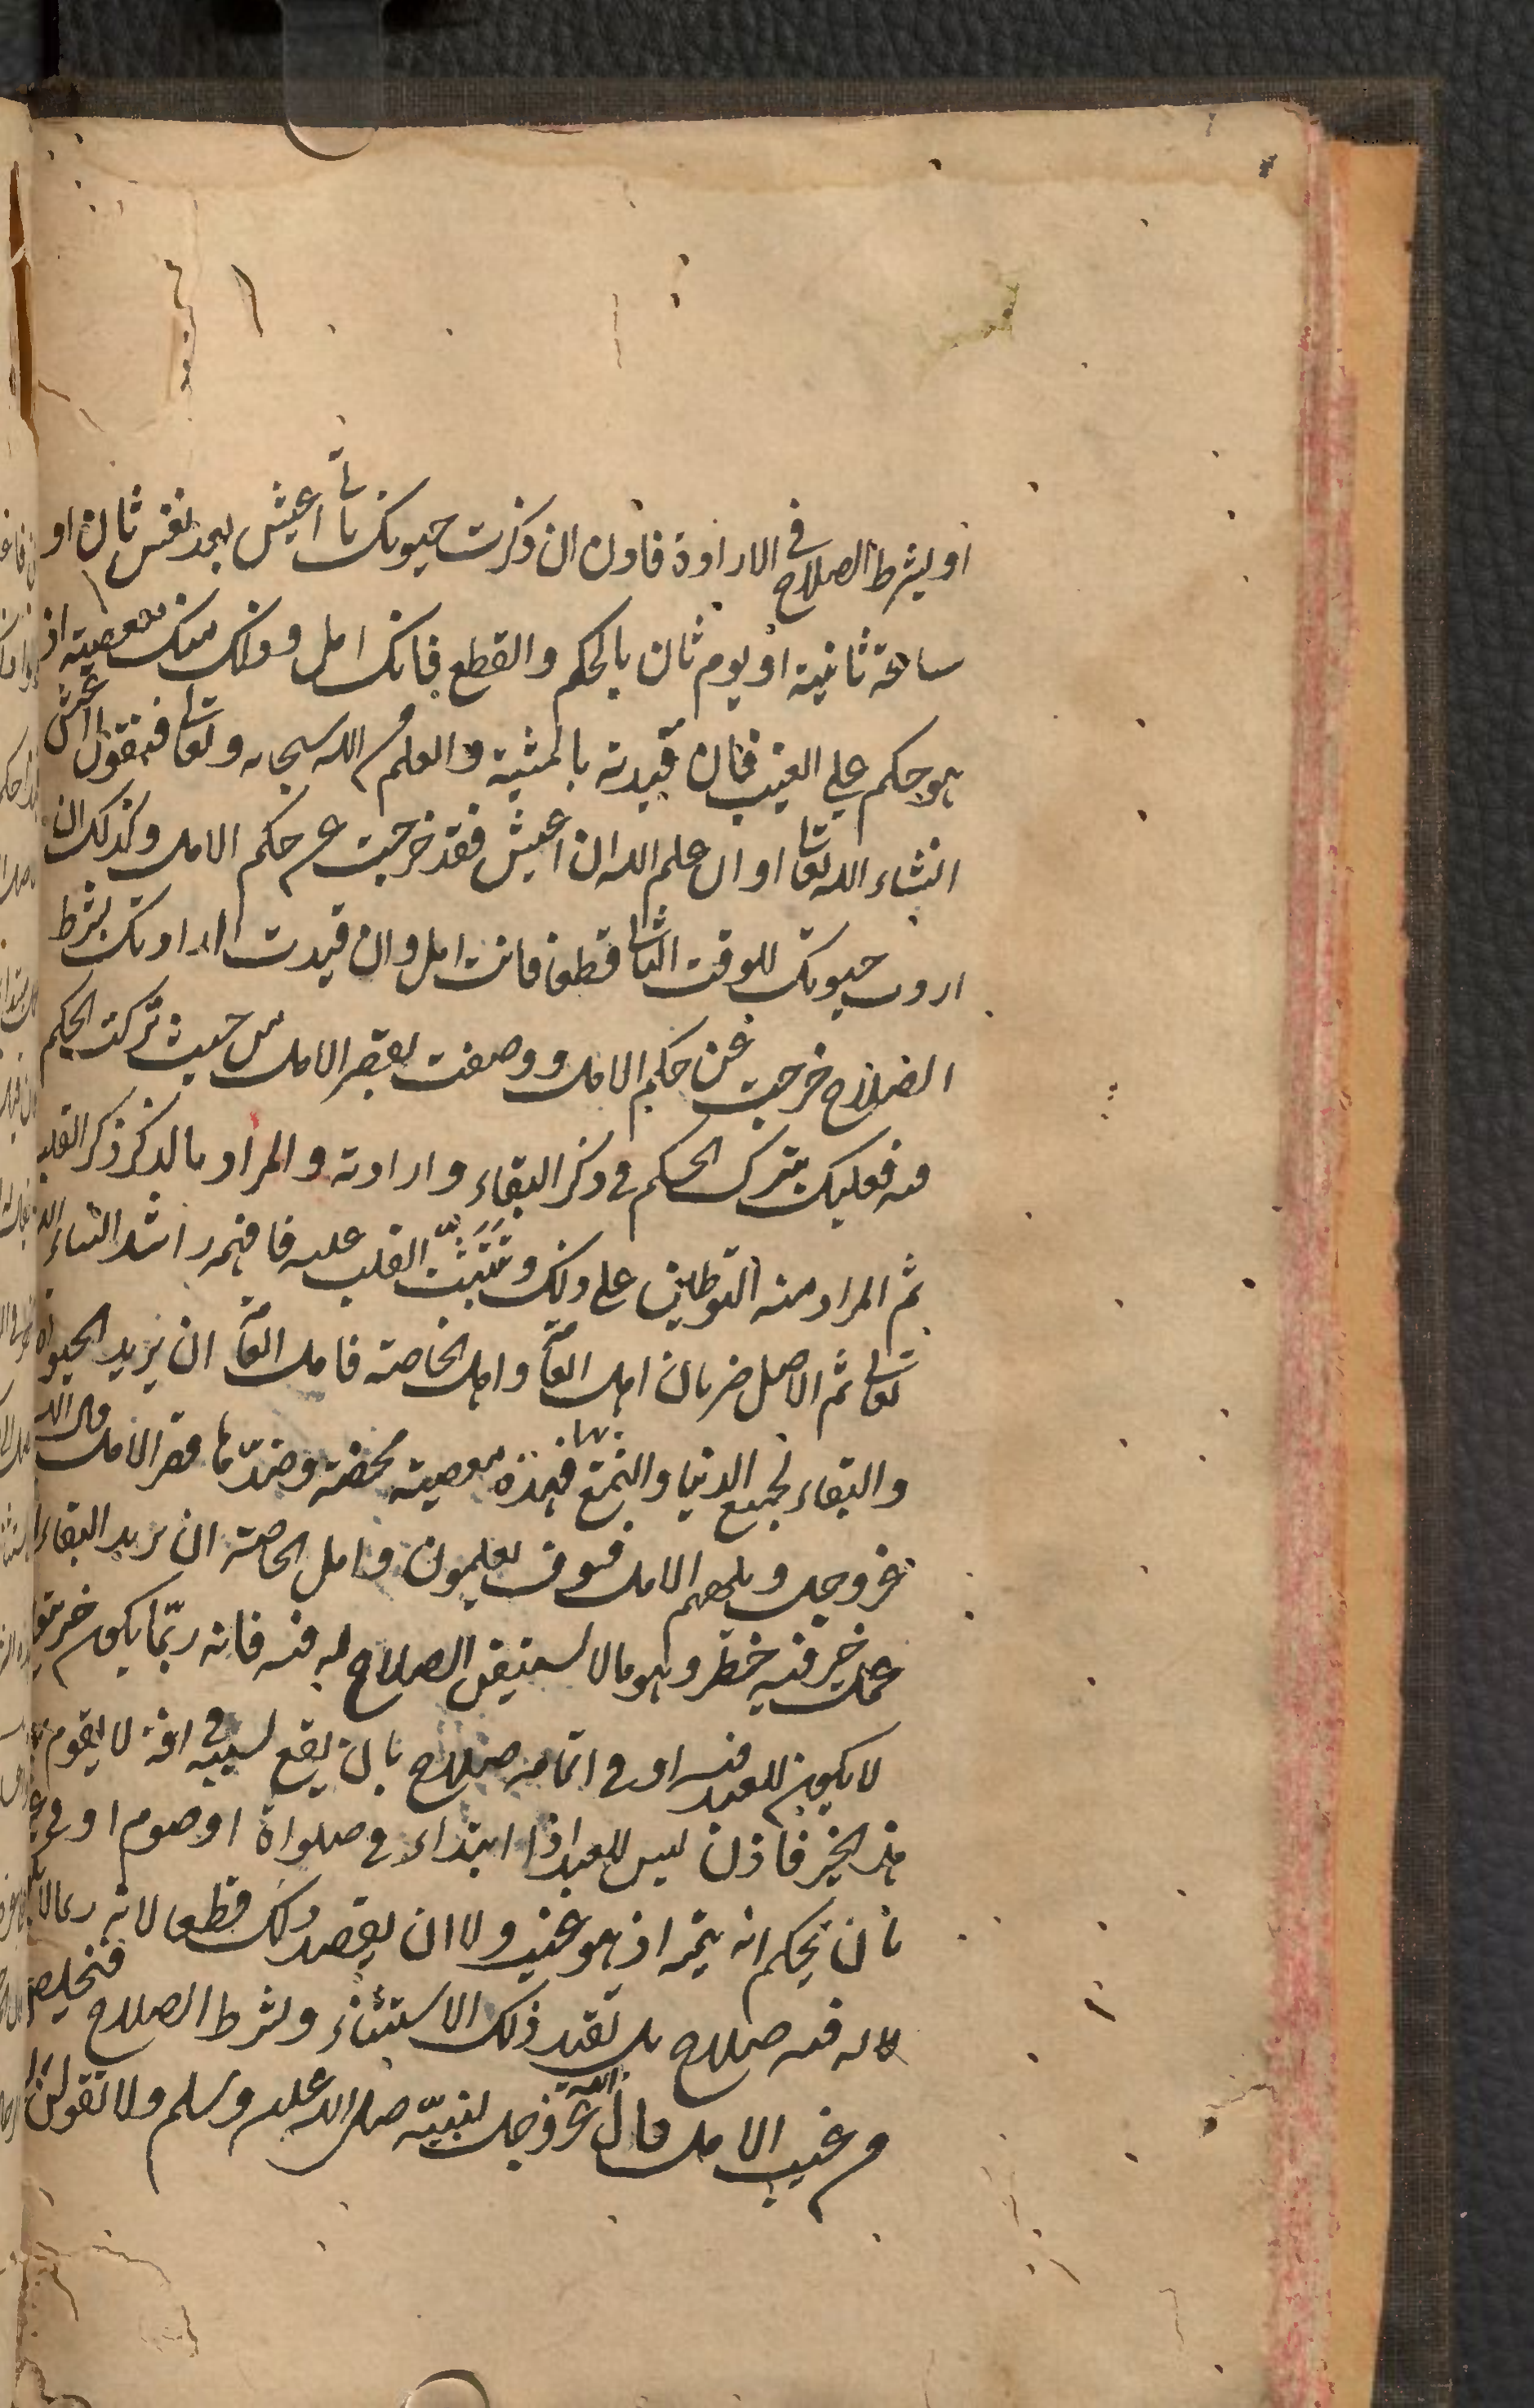 او بشرط الصلاح في الارادة فاول ان ذكرت حيوتك بانى اعيش بعد نفس ثان او
ساعة ثانية او يوم ثان بالحكم والقطع فانك امل وذلك منك معصية اذ
هو حكم على الغيب فان قيدته بالمشية والعلم من الله سبحانه وتعالى فتقول اعيش
انشاء الله تعالى او ان علم الله ان اعيش فقد خرجت عن حكم الامل وكذلك ان
اردت حيوتك للوقت الثانى قطعا فانت امل وان قيدت ارادتك بشرط
الصلاح خرجت عن حكم الامل ووصفت بقصر الامل من حيث تركت الحكم
فيه فعليك بترك الحكم في ذكر البقاء وارادته والمراد بالذكر ذكر القلب
ثم المراد منه التوطين على ذلك وتثبت القلب عليه فافهمه راشدا انشاء الله
تعالى ثم الامل ضربان امل العامة وامل الخاصة فامل العامة ان يريد الحيوة
والبقاء لجميع الدنيا والتمتع بها فهذه معصية محضة وضدها قصر الامل قال الله
عز وجل ويلههم الامل فسوف يعلمون وامل الخاصة ان يريد البقاء
عمل خير فيه خطر وهو ما لا يستيقن الصلاح له فيه فانه ربما يكون خير
لا يكون للعبد فيه او في اتمامه صلاح بان يقع بسببه في افة لا يقوم
هذا الخير فاذن ليس للعبد اذا ابتداء في صلواة او صوم او في
بان يحكم انه يتمه اذ هو غيب ولا ان يقصد ذلك قطعا لانه ربما لا
لا له فيه صلاح بل تقيد ذلك الاستثناء وبشرط الصلاح فتخلص
من عيب الامل قال الله عز وجل لنبيه صلى الله عليه وسلم ولا تقولن